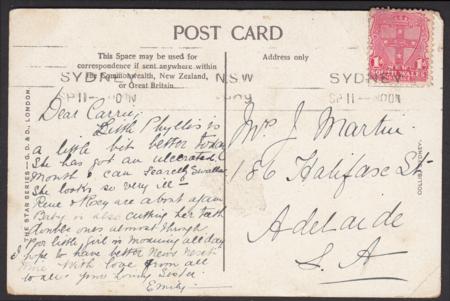 POST CARD
This Space may be used for
correspondence if sent anywhere within
the Commonwealth, New Zealand,
or Great Britain.
Address only
SYDNEY N.S.W SYDNEY
Dear Carrie,
Little Phyllis is
a little bit better today
She has got an ulcerated
mouth & can scarcely swallow
She looks so very ill —
Rene & Roey are about again
Baby is also cutting her teeth
double ones almost through
Poor little girl is moaning all day
I hope to have better news next
time With love from all
to all — your loving Sister
Emily
Mrs J Martin
186 Halifax St
Adelaide
S. A
THE STAR SERIES — G. D. & D., LONDON.